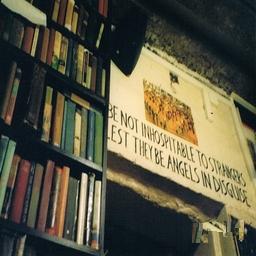 BE NOT INHOSPITABLE TO STRANGERS
LEST THEY BE ANGELS IN DISGUISE